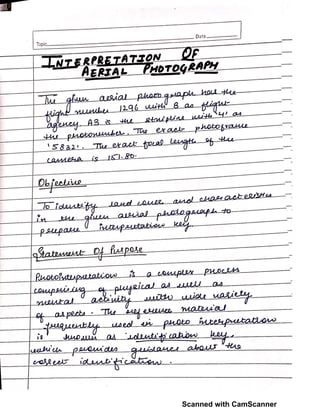 Date
Topic
INTERPRETATION OF
AERIAL PHOTOGRAPH
The given aerial photograph have the
flight number 1296 with B as flight
agency. AB is the stripline with '4' as
the photonumber. The exact photoframe
'5832'. The exact focal length of the
camera is 151.80.
Objective
To identify land cover and characteristics
in the given aerial photograph to
prepare interpretation key.
Statement Of Purpose
Photointerpretation is a complex process
comprising of physical as well as
mental activity with wide variety
of aspects. The reference material
frequently used in photo interpretation
is known as identification key
which provides guidance about the
correct identification.
Scanned with CamScanner